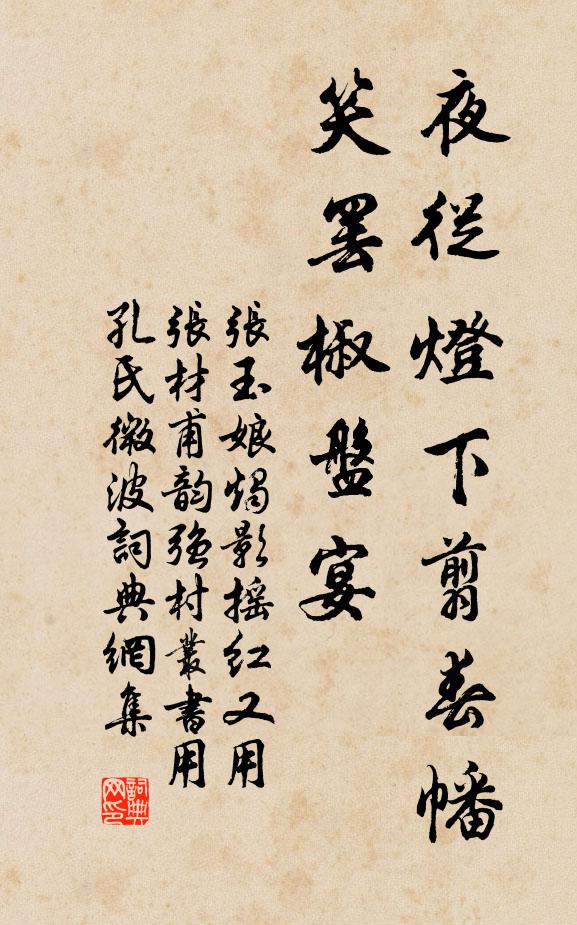 夜從燈下剪春幡
笑罷椒盤宴
張玉娘燭影搖紅又用
張材甫韵強村叢書用
孔氏微波詞典網集
詞典網印